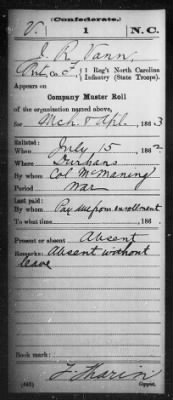 (Confederate.)
V. 1 N.C.
J. R. Vann,
1 Reg't North Carolina
Infantry (State Troops).
Appears on
Company Muster Roll
of the organization named above,
for Mch & Apl, 1863
Enlisted:
When July 15, 1862
Where Durhams
By whom Col McManing
Period War
Last paid:
By whom Pay due from enrollment
To what time , 186
Present or absent Absent
Remarks: Absent without
leave
Book mark:
Copyist.